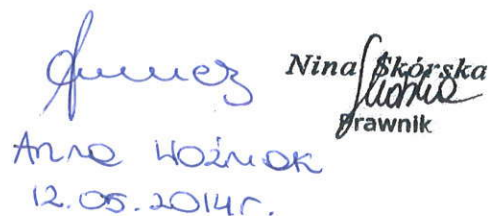 Nina Skórska
Prawnik
Anna Woźniak
12.05.2014r.